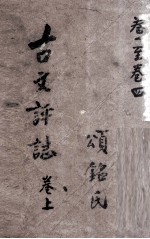 卷一至卷四
古文評誌 卷上
頌銘氏